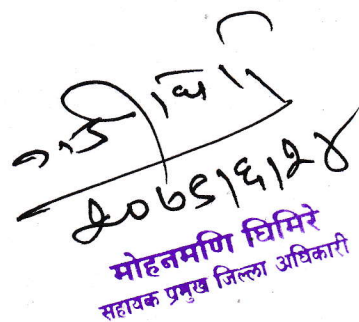 २०७९।६।२४
मोहनमणि घिमिरे
सहायक प्रमुख जिल्ला अधिकारी